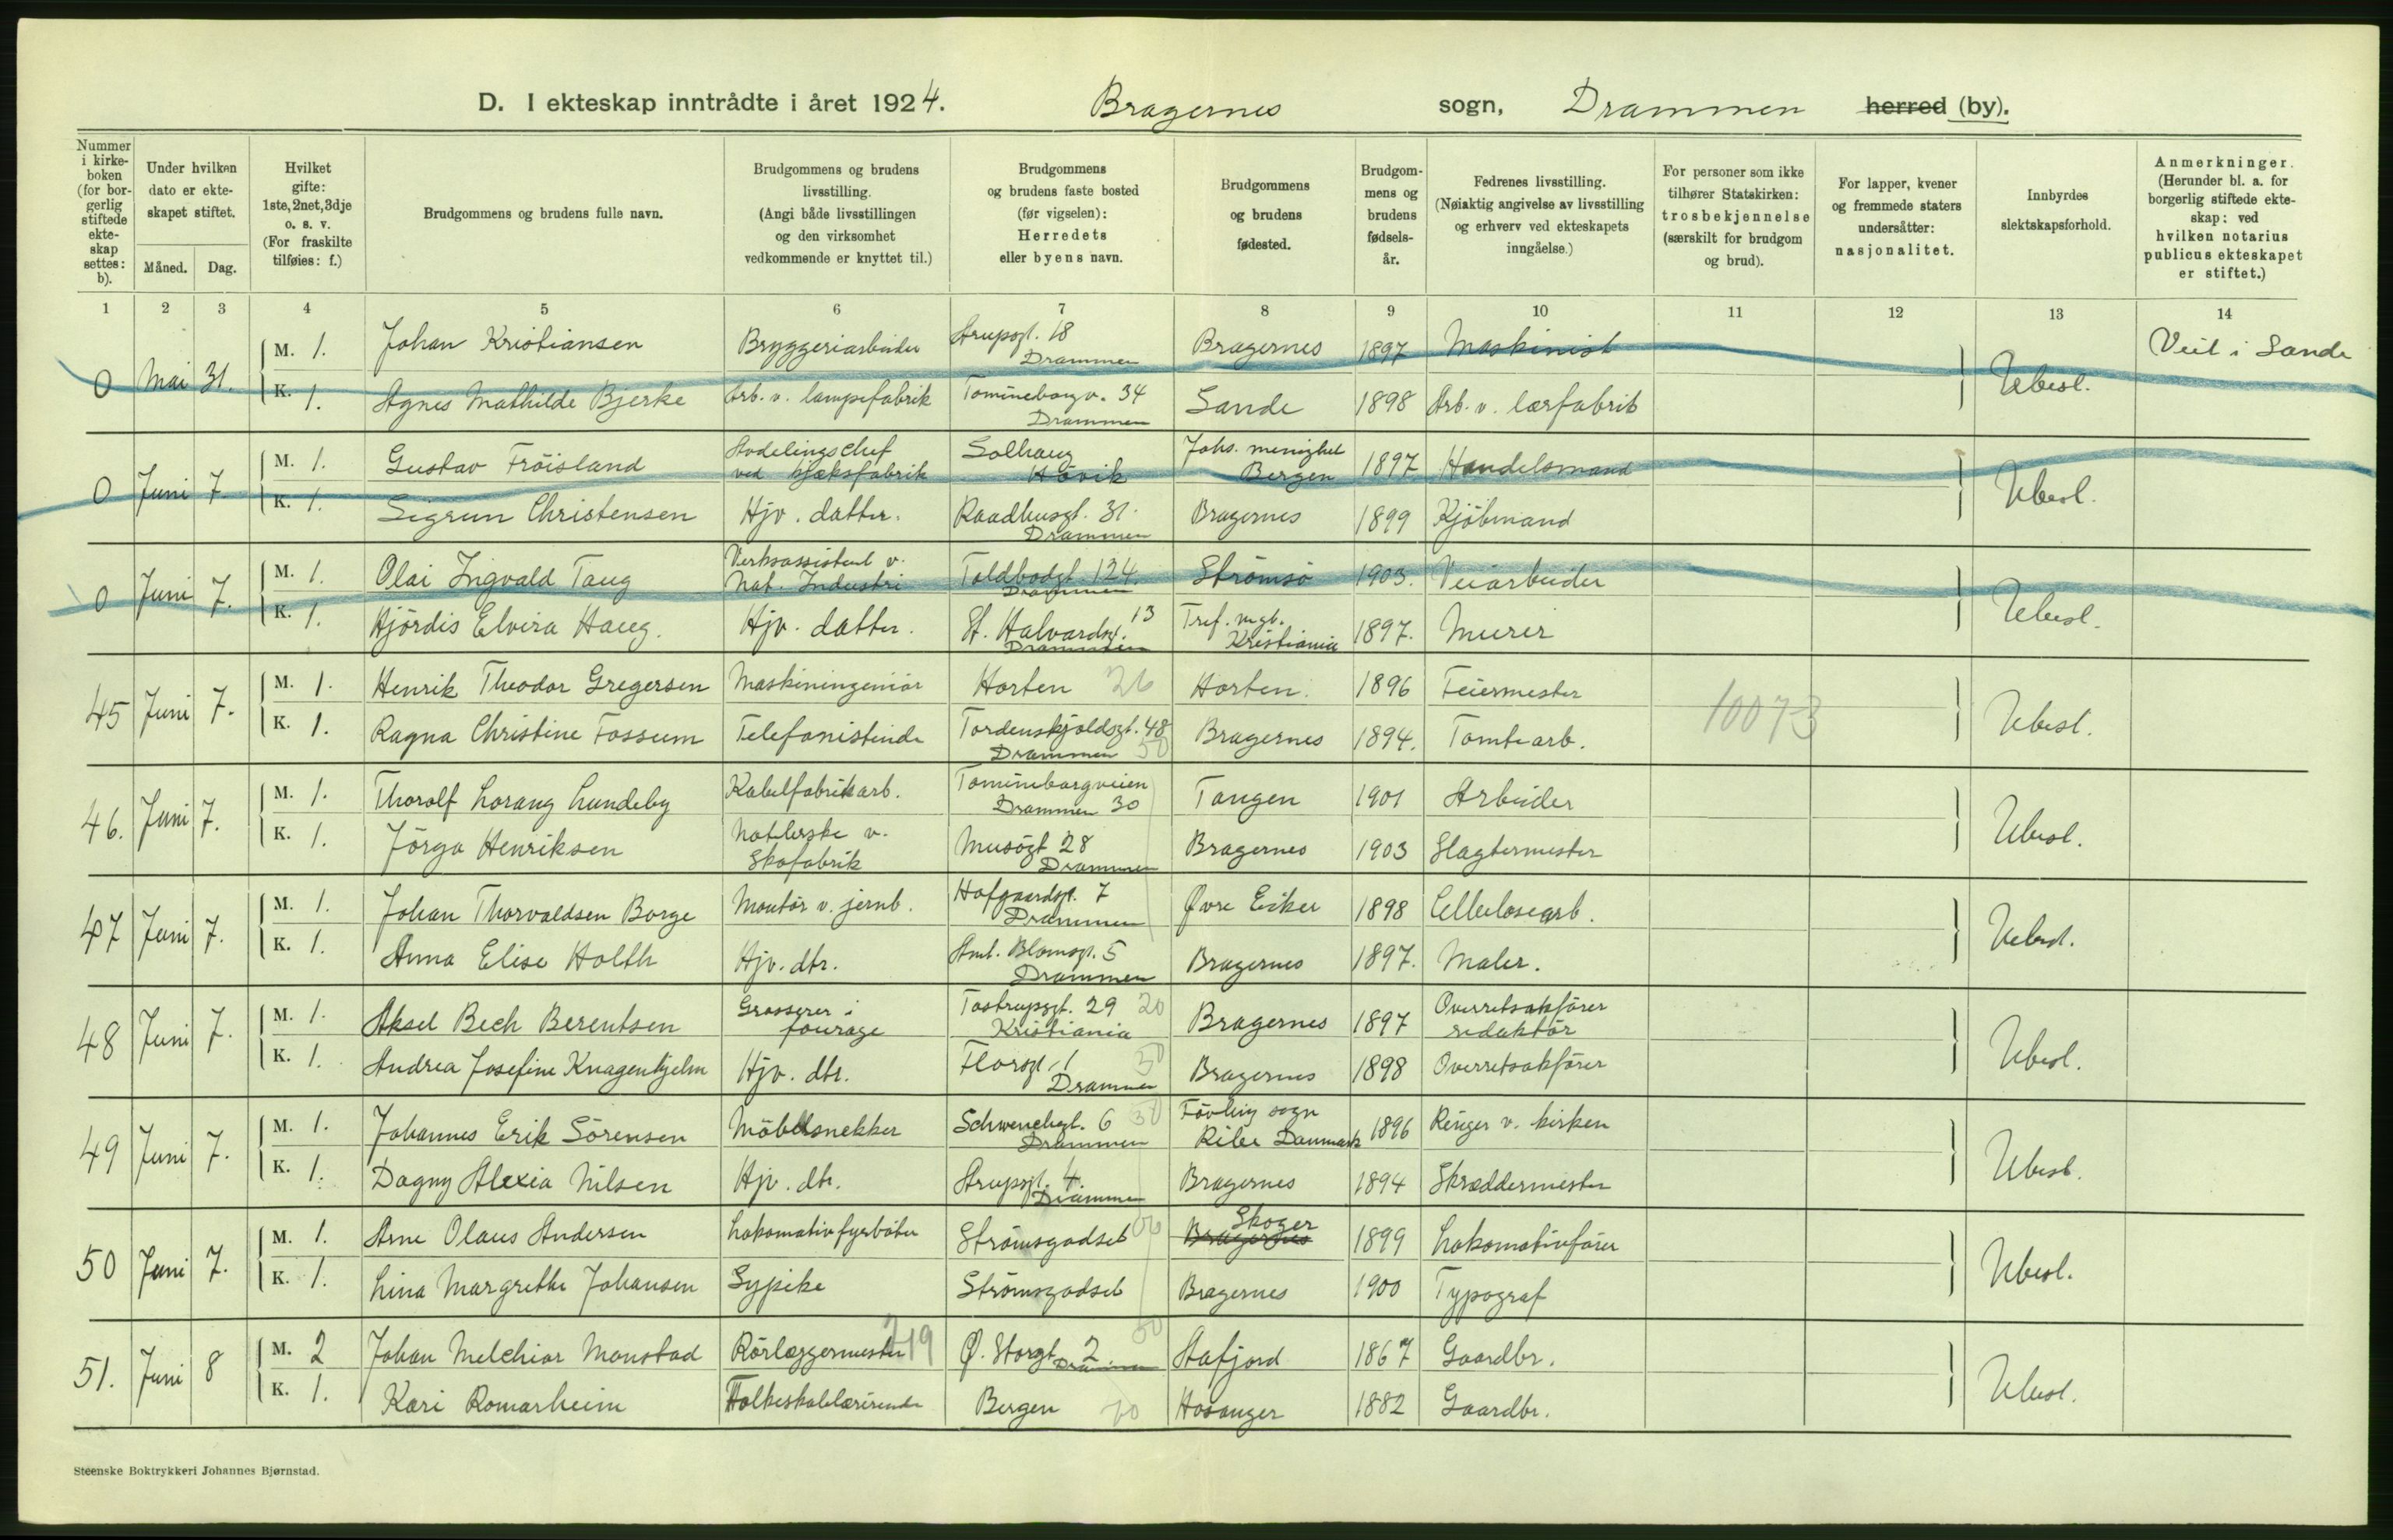 D. I ekteskap inntrådte i året 1924. Bragernes sogn, Drammen herred (by).
Nummer i kirkeboken (for borgerlig stiftede ekteskap settes: b).
Under hvilken dato er ekteskapet stiftet.
Måned. Dag.
Hvilket gifte: 1ste, 2net, 3dje o. s. v. (For fraskilte tilføies: f.)
Brudgommens og brudens fulle navn.
Brudgommens og brudens livsstilling. (Angi både livsstillingen og den virksomhet vedkommende er knyttet til.)
Brudgommens og brudens faste bosted (før vigselen): Herredets eller byens navn.
Brudgommens og brudens fødested.
Brudgommens og brudens fødselsår.
Fedrenes livsstilling. (Nøiaktig angivelse av livsstilling og erhverv ved ekteskapets inngåelse.)
For personer som ikke tilhører Statskirken: trosbekjennelse (særskilt for brudgom og brud).
For lapper, kvener og fremmede staters undersåtter: nasjonalitet.
Innbyrdes slektskapsforhold.
Anmerkninger. (Herunder bl. a. for borgerlig stiftede ekteskap: ved hvilken notarius publicus ekteskapet er stiftet.)
1 2 3 4 5 6 7 8 9 10 11 12 13 14
0 Mai 31. M. 1. Johan Kristiansen Bryggeriarbeider Strupsgt. 18 Drammen Bragernes 1897 Maskinist Ubesl. Viet i Sande
K. 1. Agnes Mathilde Bjerke Arb. v. lampefabrik Tomineborgv. 34 Drammen Sande 1898 Arb. v. lærfabrik
0 Juni 7 M. 1. Gustav Fröisland Avdelingschef ved kjæksfabrik Solhaug Hövik Johs. menighet Bergen 1897 Handelsmand Ubesl.
K. 1. Sigrun Christensen Hjv. datter. Raadhusgt. 31. Drammen Bragernes 1899 Kjöbmand
0 Juni 7. M. 1. Olai Ingvald Taug Verksassistent v. Nat. Industri Toldbodgt 124. Drammen Strömsö 1903. Veiarbeider Ubesl.
K. 1. Hjördis Elvira Haug. Hjv. datter. St. Halvardsgt. 13 Drammen Tref. mgh. Kristiania 1897. Murer
45 Juni 7. M. 1. Henrik Theodor Gregersen Maskiningeniör Horten 26 Horten. 1896 Feiermester 10073 Ubesl.
K. 1. Ragna Christine Fossum Telefonistinde Tordenskjoldsgt. 48 Drammen 50 Bragernes 1894. Tomtearb.
46. Juni 7. M. 1. Thorolf Lorang Lundeby Kabelfabrikarb. Tomineborgveien Drammen 30 Tangen 1901 Arbeider Ubesl.
K. 1. Jörga Henriksen Natlerske v. Skofabrik Musögt 28 Drammen Bragernes 1903 Slagtermester
47 Juni 7. M. 1. Johan Thorvaldsen Borge Montör v. jernb. Hofgaardsgt. 7 Drammen Øvre Eiker 1898 Cellulosearb. Ubesl.
K. 1. Anna Elise Holth Hjv. dtr. Amt. Blomsgt. 5 Drammen Bragernes 1897. Maler.
48 Juni 7. M. 1. Aksel Bech Berentsen Grosserer i fourage Tostrupsgt. 29 20 Kristiania Bragernes 1897 Overretssakfører redaktör Ubesl.
K. 1. Andrea Josefine Knagenhjelm Hjv. dtr. Florsgt. 1 30 Drammen Bragernes 1898 Overretssakfører
49 Juni 7. M. 1. Johannes Erik Sörensen Möbelsnekker Schwenckegt. 6 30 Drammen Fövling sogn Ribe Danmark 1896 Ringer v. kirken Ubesl.
K. 1. Dagny Alexia Nilsen Hjv. dtr. Strupsgt. 4. Drammen Bragernes 1894 Skræddermester
50 Juni 7. M. 1. Arne Olaus Andersen Lokomotivfyrböter Strömsgodset Bragernes Skoger 1899 Lokomotivfører Ubesl.
K. 1. Lina Margrethe Johansen Sypike Strömsgodset Bragernes 1900 Typograf
51. Juni 8 M. 2 Johan Melchior Monstad Rörlæggermester 219 Ø. Storgt. 2 Drammen Stafjord 1867 Gaardbr. Ubesl.
K. 1. Kari Romarheim Folkeskolelærerinde Bergen Hosanger 1882 Gaardbr.
Steenske Boktrykkeri Johannes Bjørnstad.